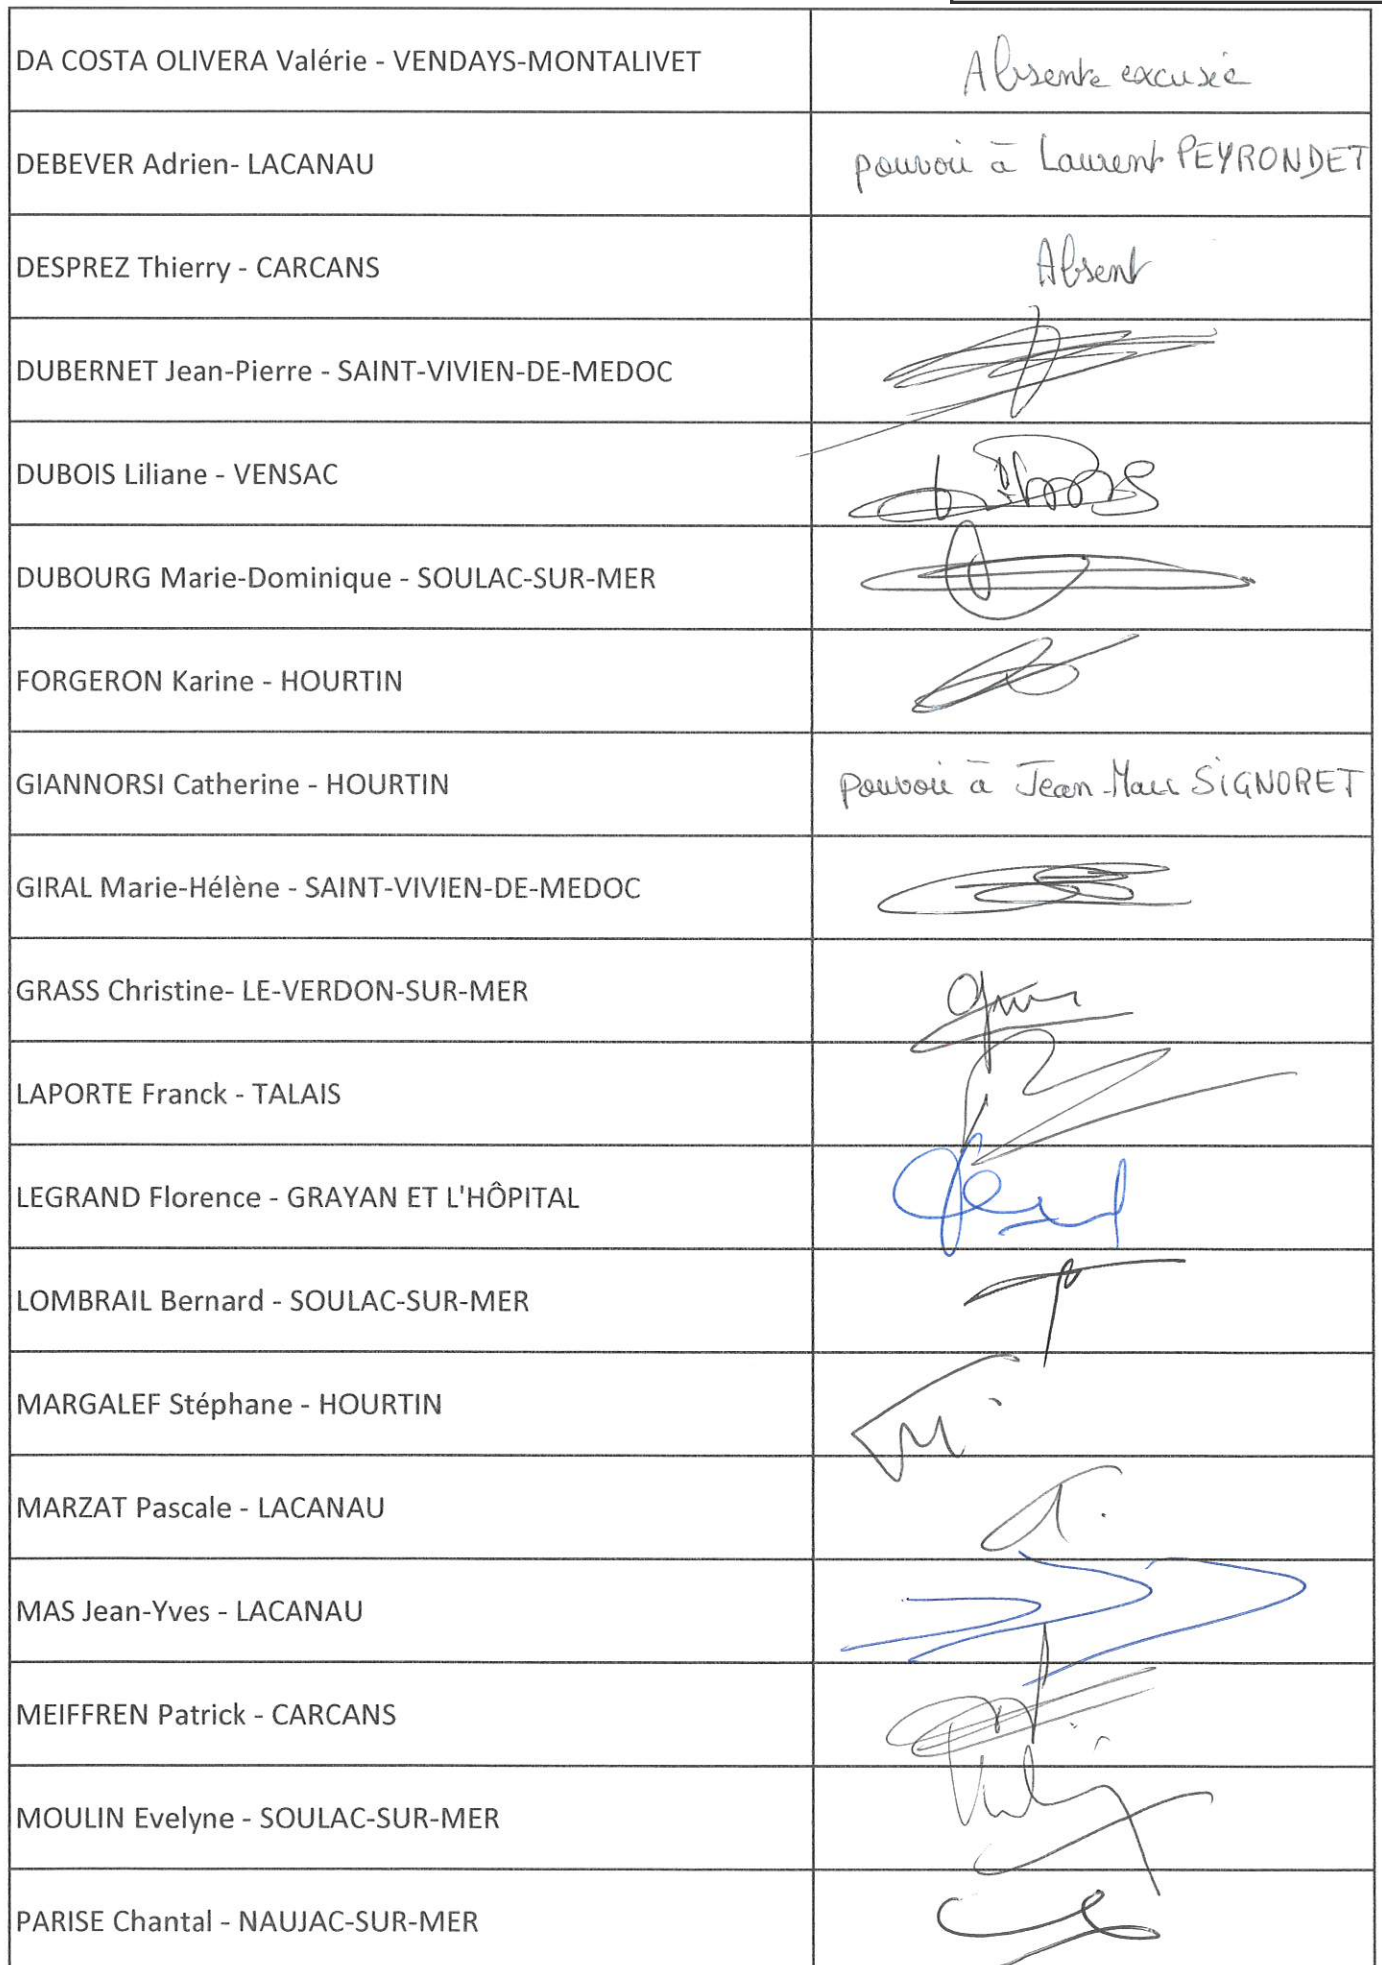 DA COSTA OLIVERA Valérie - VENDAYS-MONTALIVET Absente excusée
DEBEVER Adrien- LACANAU pouvoir à Laurent PEYRONDET
DESPREZ Thierry - CARCANS Absent
DUBERNET Jean-Pierre - SAINT-VIVIEN-DE-MEDOC
DUBOIS Liliane - VENSAC
DUBOURG Marie-Dominique - SOULAC-SUR-MER
FORGERON Karine - HOURTIN
GIANNORSI Catherine - HOURTIN pouvoir à Jean-Marc SIGNORET
GIRAL Marie-Hélène - SAINT-VIVIEN-DE-MEDOC
GRASS Christine- LE-VERDON-SUR-MER
LAPORTE Franck - TALAIS
LEGRAND Florence - GRAYAN ET L'HÔPITAL
LOMBRAIL Bernard - SOULAC-SUR-MER
MARGALEF Stéphane - HOURTIN
MARZAT Pascale - LACANAU
MAS Jean-Yves - LACANAU
MEIFFREN Patrick - CARCANS
MOULIN Evelyne - SOULAC-SUR-MER
PARISE Chantal - NAUJAC-SUR-MER